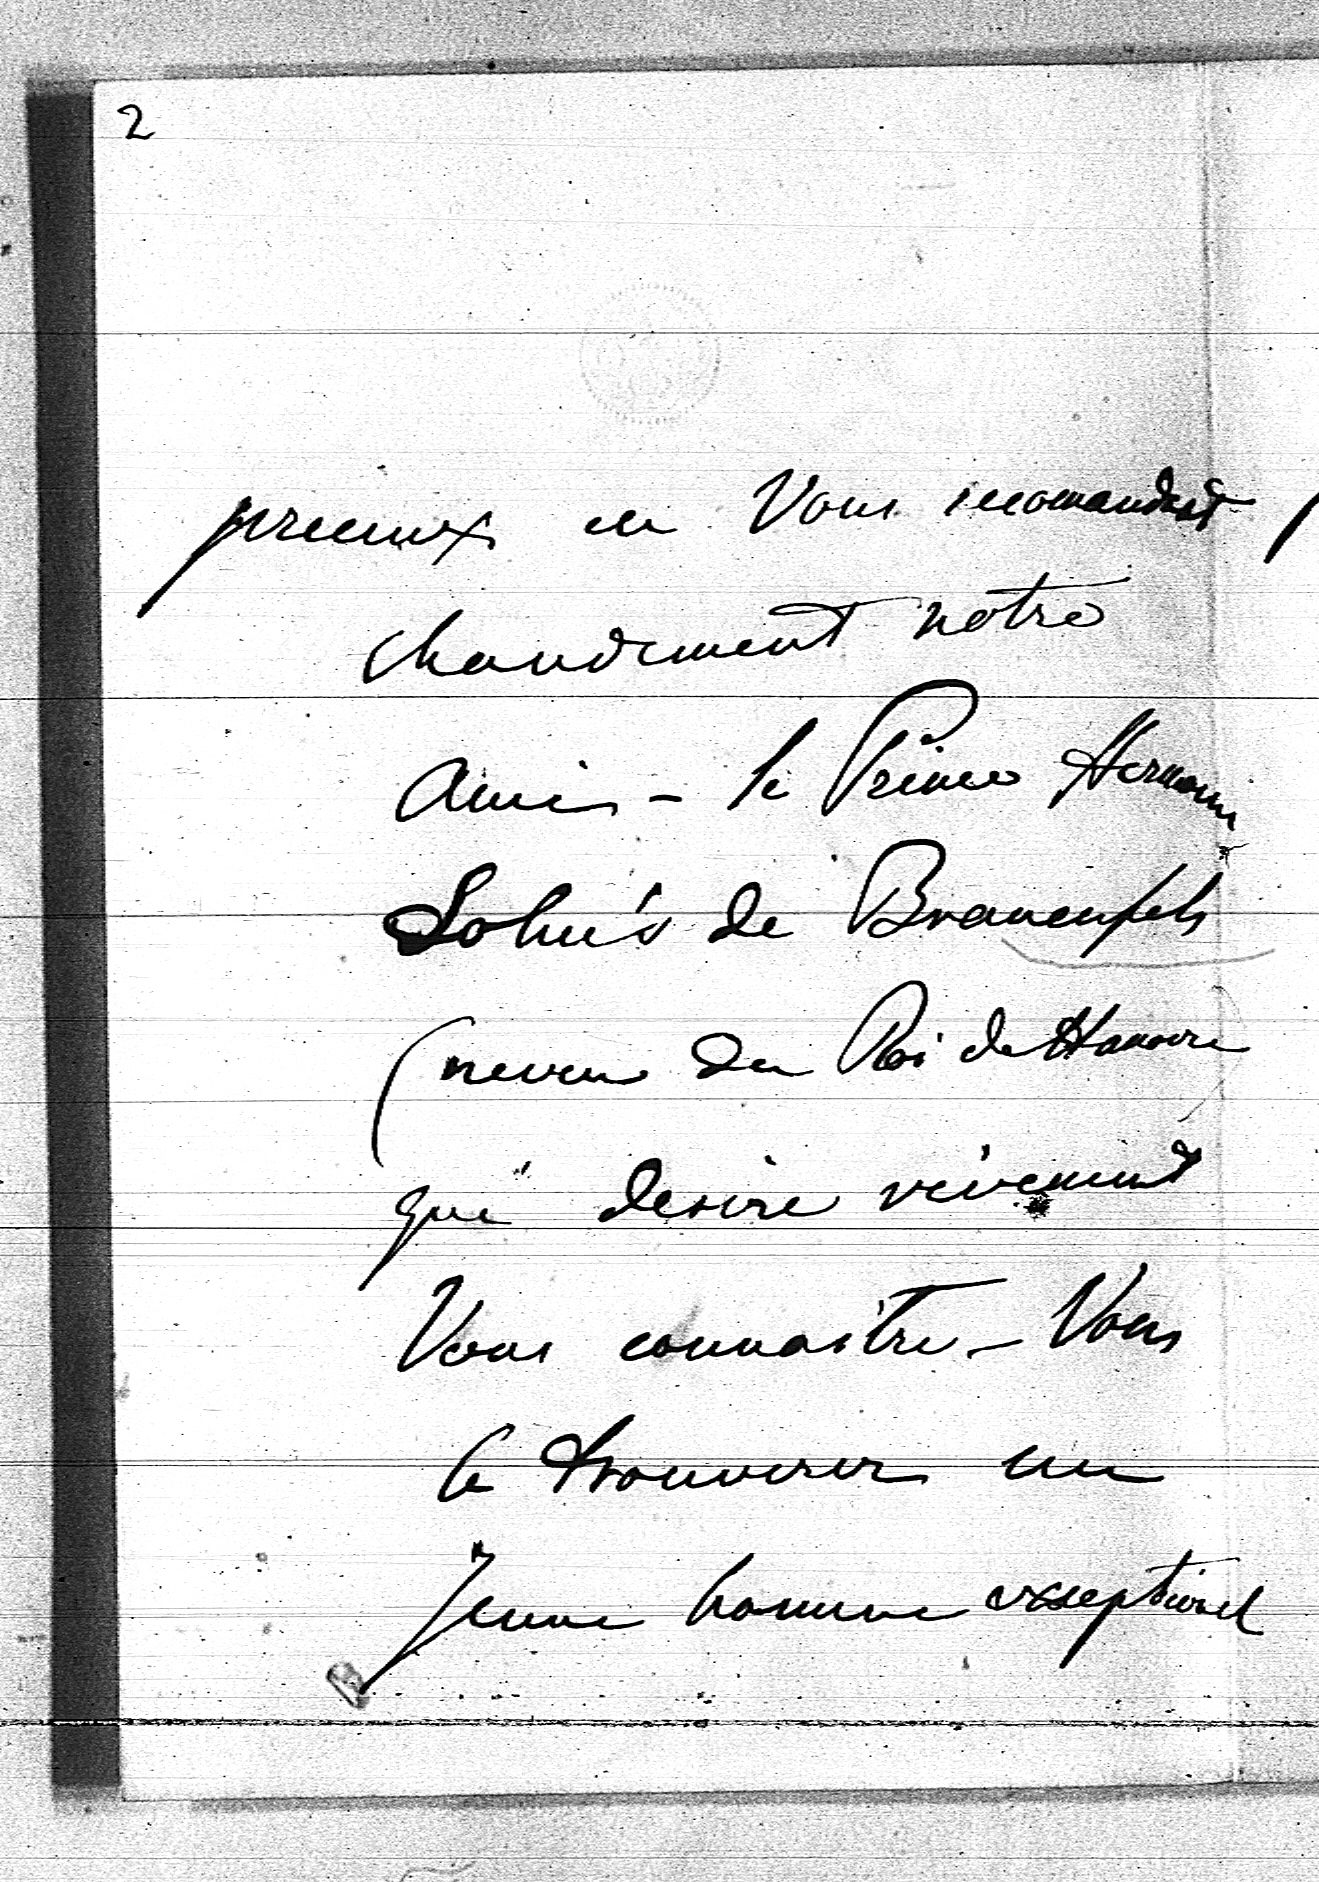 2
precieux en Vous recomandant
chaudement notre
Ami - le Prince Hermann
Solm's de Braunfels
(neveu du Roi de Hanovre
qui desire vivement
Vous connaitre - Vous
le trouverez un
Jeune homme exseptionel